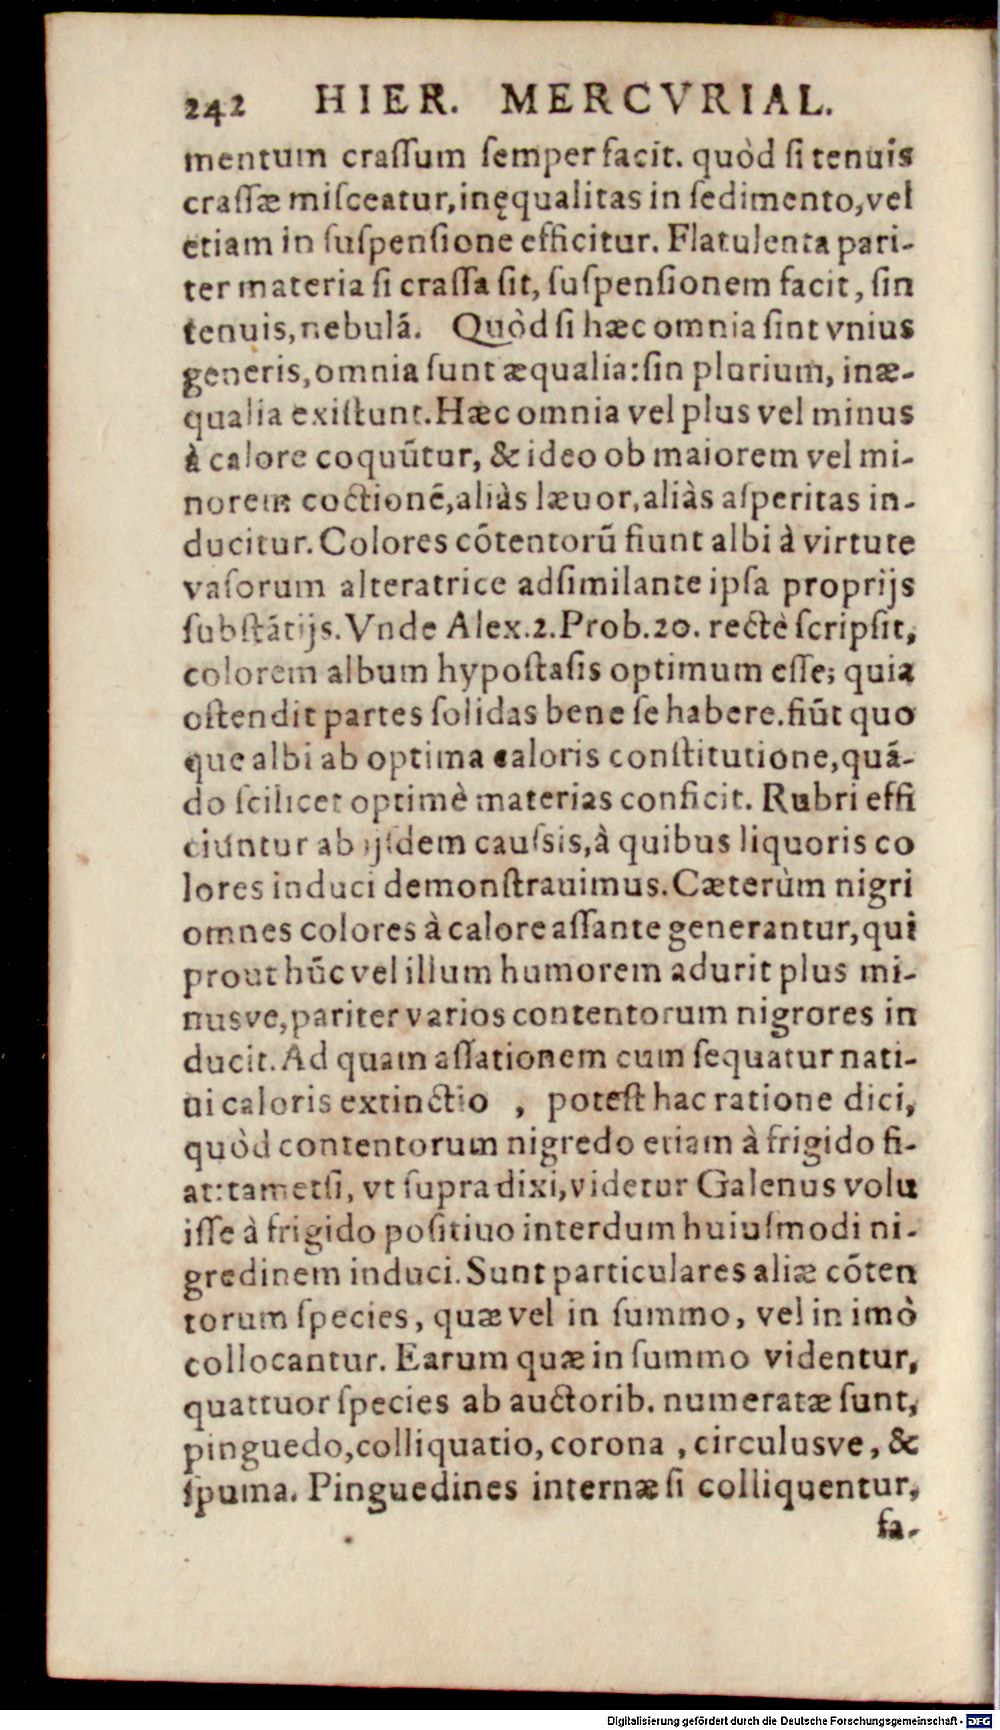 242 HIER. MERCVRIAL.
mentum craſſum ſemper facit. quòd ſi tenuis
craſſæ miſceatur, inęqualitas in ſedimento, vel
etiam in ſuſpenſione efficitur. Flatulenta pari-
ter materia ſi craſſa ſit, ſuſpenſionem facit, ſin
tenuis, nebulã. Quòd ſi hæc omnia ſint vnius
generis, omnia ſunt æqualia: ſin plurium, inæ-
qualia exiſtunt. Hæc omnia vel plus vel minus
à calore coquũtur, & ideo ob maiorem vel mi-
norem coctionẽ, aliàs læuor, aliàs aſperitas in-
ducitur. Colores cõtentorũ fiunt albi à virtute
vaſorum alteratrice adſimilante ipſa proprijs
ſubſtãtijs. Vnde Alex. 2. Prob. 20. rectè ſcripſit,
colorem album hypoſtaſis optimum eſſe; quia
oſtendit partes ſolidas bene ſe habere. fiũt quo
que albi ab optima caloris conſtitutione, quã-
do ſcilicet optimè materias conficit. Rubri effi
ciuntur ab ijſdem cauſsis, à quibus liquoris co
lores induci demonſtrauimus. Cæterùm nigri
omnes colores à calore aſſante generantur, qui
prout hũc vel illum humorem adurit plus mi-
nusve, pariter varios contentorum nigrores in
ducit. Ad quam aſſationem cum ſequatur nati-
ui caloris extinctio , poteſt hac ratione dici,
quòd contentorum nigredo etiam à frigido fi-
at: tametſi, vt ſupra dixi, videtur Galenus volu
iſſe à frigido poſitiuo interdum huiuſmodi ni-
gredinem induci. Sunt particulares aliæ cõten
torum ſpecies, quæ vel in ſummo, vel in imò
collocantur. Earum quæ in ſummo videntur,
quattuor ſpecies ab auctorib. numeratæ ſunt,
pinguedo, colliquatio, corona , circulusve, &
ſpuma. Pinguedines internæ ſi colliquentur,
fa-
Digitalisierung gefördert durch die Deutsche Forschungsgemeinschaft - DFG